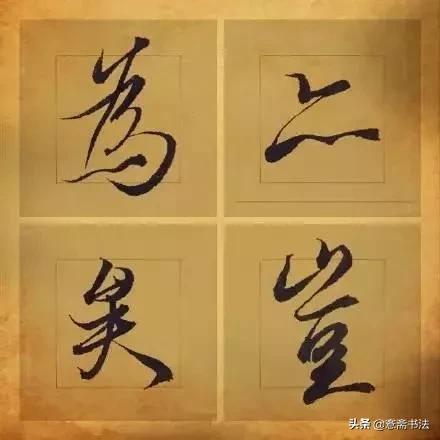 為亦
豈
头条 @意斋书法